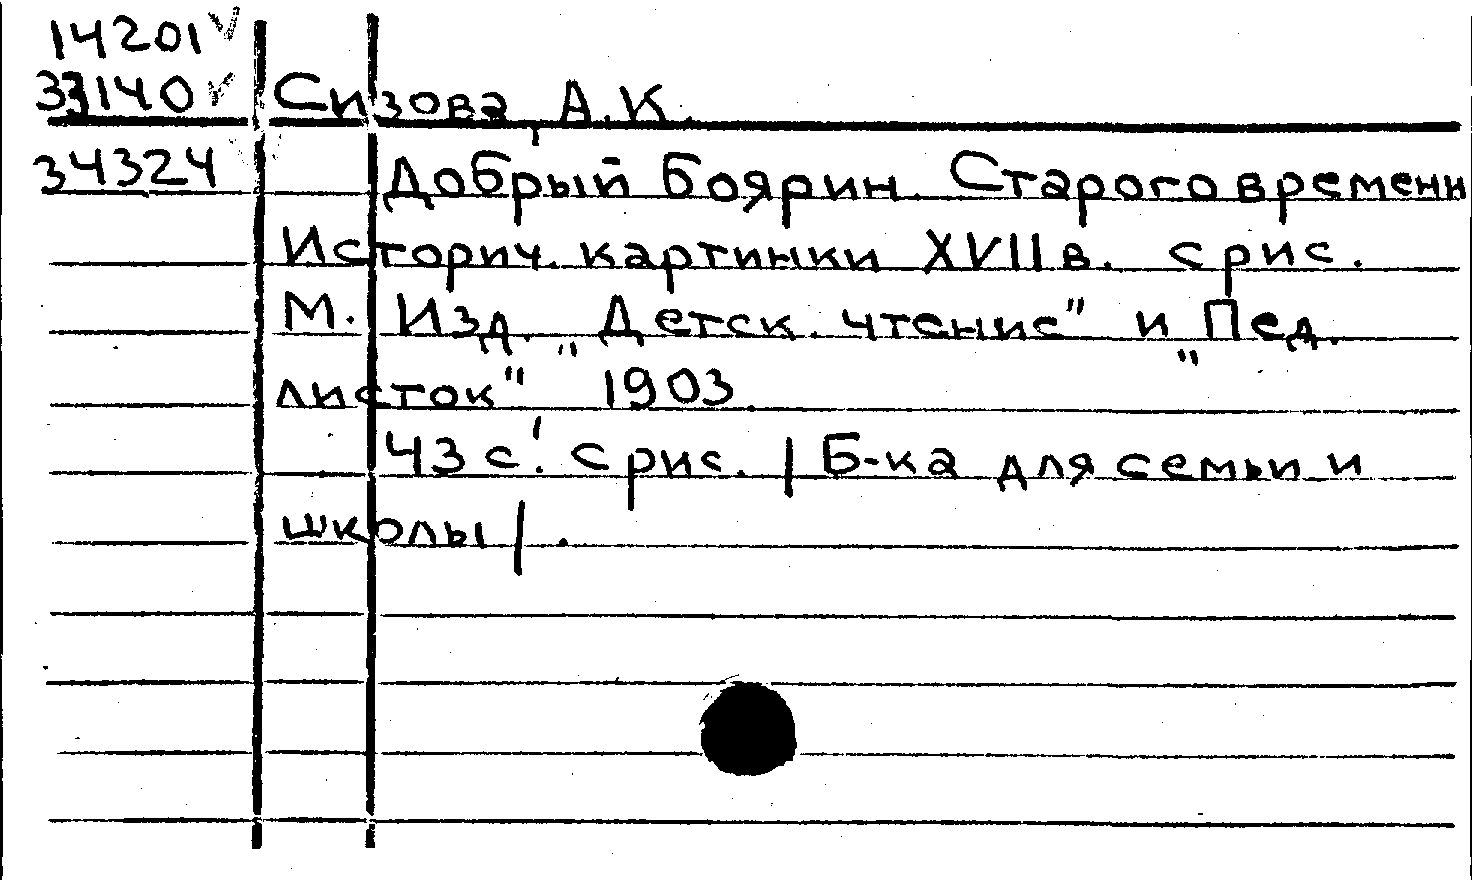 14201
33140 Сизова, А.К.
34324 Добрый боярин. Старого времени
Историч. картинки XVII в. с рис.
М. Изд. „Детск. чтение" и „Пед.
листок" 1903.
43 с. с рис. | Б-ка для семьи и
школы | .